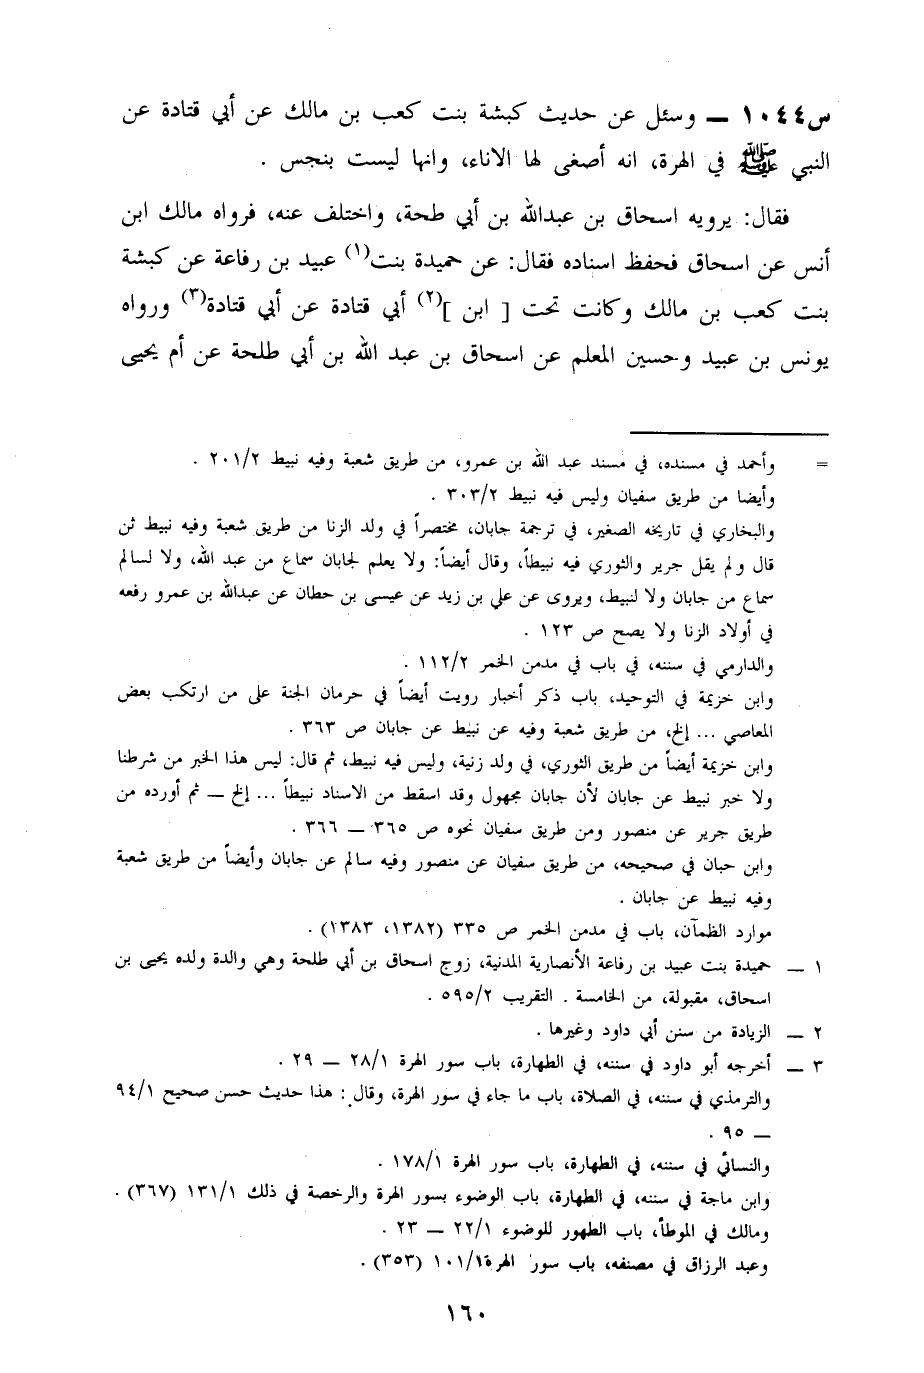 س١٠٤٤ ــ وسئل عن حديث كبشة بنت كعب بن مالك عن أبي قتادة عن
النبي ﷺ في الهرة، انه أصغى لها الاناء، وانها ليست بنجس .
فقال: يرويه اسحاق بن عبدالله بن أبي طحة، واختلف عنه، فرواه مالك ابن
أنس عن اسحاق فحفظ اسناده فقال: عن حميدة بنت(١) عبيد بن رفاعة عن كبشة
بنت كعب بن مالك وكانت تحت [ ابن ](٢) أبي قتادة عن أبي قتادة(٣) ورواه
يونس بن عبيد وحسين المعلم عن اسحاق بن عبد الله بن أبي طلحة عن أم يحيى
= وأحمد في مسنده، في مسند عبد الله بن عمرو، من طريق شعبة وفيه نبيط ٢٠١/٢ .
وأيضا من طريق سفيان وليس فيه نبيط ٣٠٣/٢ .
والبخاري في تاريخه الصغير، في ترجمة جابان، مختصراً في ولد الزنا من طريق شعبة وفيه نبيط ثن
قال ولم يقل جرير والثوري فيه نبيطاً، وقال أيضاً: ولا يعلم لجابان سماع من عبد الله، ولا لسالم
سماع من جابان ولا لنبيط، ويروى عن علي بن زيد عن عيسى بن حطان عن عبدالله بن عمرو رفعه
في أولاد الزنا ولا يصح ص ١٢٣ .
والدارمي في سننه، في باب في مدمن الخمر ١١٢/٢ .
وابن خزيمة في التوحيد، باب ذكر أخبار رويت أيضاً في حرمان الجنة على من ارتكب بعض
المعاصي ... إلخ، من طريق شعبة وفيه عن نبيط عن جابان ص ٣٦٣ .
وابن خزيمة أيضاً من طريق الثوري، في ولد زنية، وليس فيه نبيط، ثم قال: ليس هذا الخبر من شرطنا
ولا خبر نبيط عن جابان لأن جابان مجهول وقد اسقط من الاسناد نبيطاً ... إلخ ــ ثم أورده من
طريق جرير عن منصور ومن طريق سفيان نحوه ص ٣٦٥ ــ ٣٦٦ .
وابن حبان في صحيحه، من طريق سفيان عن منصور وفيه سالم عن جابان وأيضاً من طريق شعبة
وفيه نبيط عن جابان .
موارد الظمآن، باب في مدمن الخمر ص ٣٣٥ (١٣٨٢، ١٣٨٣) .
١ ــ حميدة بنت عبيد بن رفاعة الأنصارية المدنية، زوج اسحاق بن أبي طلحة وهي والدة ولده يحيى بن
اسحاق، مقبولة، من الخامسة . التقريب ٥٩٥/٢ .
٢ ــ الزيادة من سنن أبي داود وغيرها .
٣ ــ أخرجه أبو داود في سننه، في الطهارة، باب سور الهرة ٢٨/١ ــ ٢٩ .
والترمذي في سننه، في الصلاة، باب ما جاء في سور الهرة، وقال: هذا حديث حسن صحيح ٩٤/١
ــ ٩٥ .
والنسائي في سننه، في الطهارة، باب سور الهرة ١٧٨/١ .
وابن ماجة في سننه، في الطهارة، باب الوضوء بسور الهرة والرخصة في ذلك ١٣١/١ (٣٦٧) .
ومالك في الموطأ، باب الطهور للوضوء ٢٢/١ ــ ٢٣ .
وعبد الرزاق في مصنفه، باب سور الهرة١٠١/١ (٣٥٣) .
١٦٠